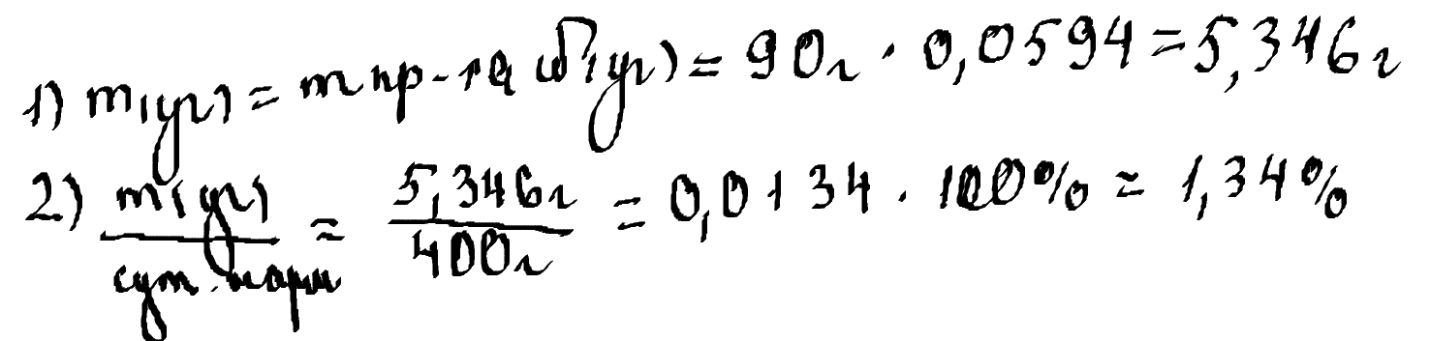 1) m(уг) = m пр-та · ω(уг) = 90г · 0,0594 = 5,346г
2) m(уг) / сут. норм = 5,346г / 400г = 0,0134 · 100% = 1,34%